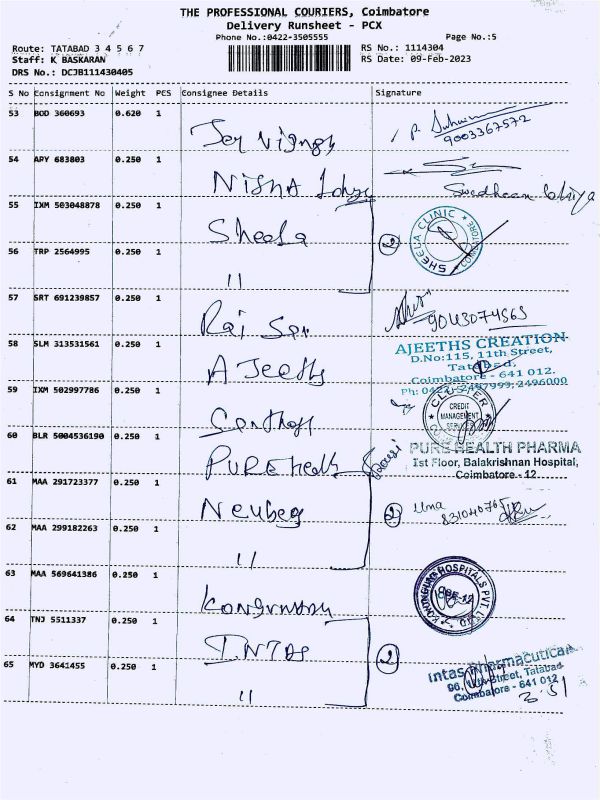 THE PROFESSIONAL COURIERS, Coimbatore
Delivery Runsheet - PCX
Phone No.:0422-3505555 Page No.:5
Route: TATABAD 3 4 5 6 7 RS No.: 1114304
Staff: K BASKARAN RS Date: 09-Feb-2023
DRS No.: DCJB111430405
S No Consignment No Weight PCS Consignee Details Signature
53 BOD 360693 0.620 1
9003367572
54 APY 683803 0.250 1 Nisha
55 IXM 503048878 0.250 1 Sheela 2 SHEELA CLINIC * COIMBATORE *
56 TRP 2564995 0.250 1 "
57 SRT 691239857 0.250 1 Raj 9043074565
58 SLM 313531561 0.250 1 AJeeths
AJEETHS CREATION
D.No:115, 11th Street,
Tatabad,
Coimbatore - 641 012.
Ph: 0422-2497999, 2496000
59 IXM 502997786 0.250 1 CLUSTER CREDIT MANAGEMENT SERVICES
60 BLR 5004536190 0.250 1 PURE health
PURE HEALTH PHARMA
Ist Floor, Balakrishnan Hospital,
Coimbatore - 12
61 MAA 291723377 0.250 1 Neuberg 2 Uma
8310440765
62 MAA 299182263 0.250 1 "
63 MAA 569641386 0.250 1 KONGUNAD HOSPITALS PVT. LTD
64 TNJ 5511337 0.250 1 INTAS 2
Intas Pharmaceutical
96, 11th Street, Tatabad
Coimbatore - 641 012
65 MYD 3641455 0.250 1 "